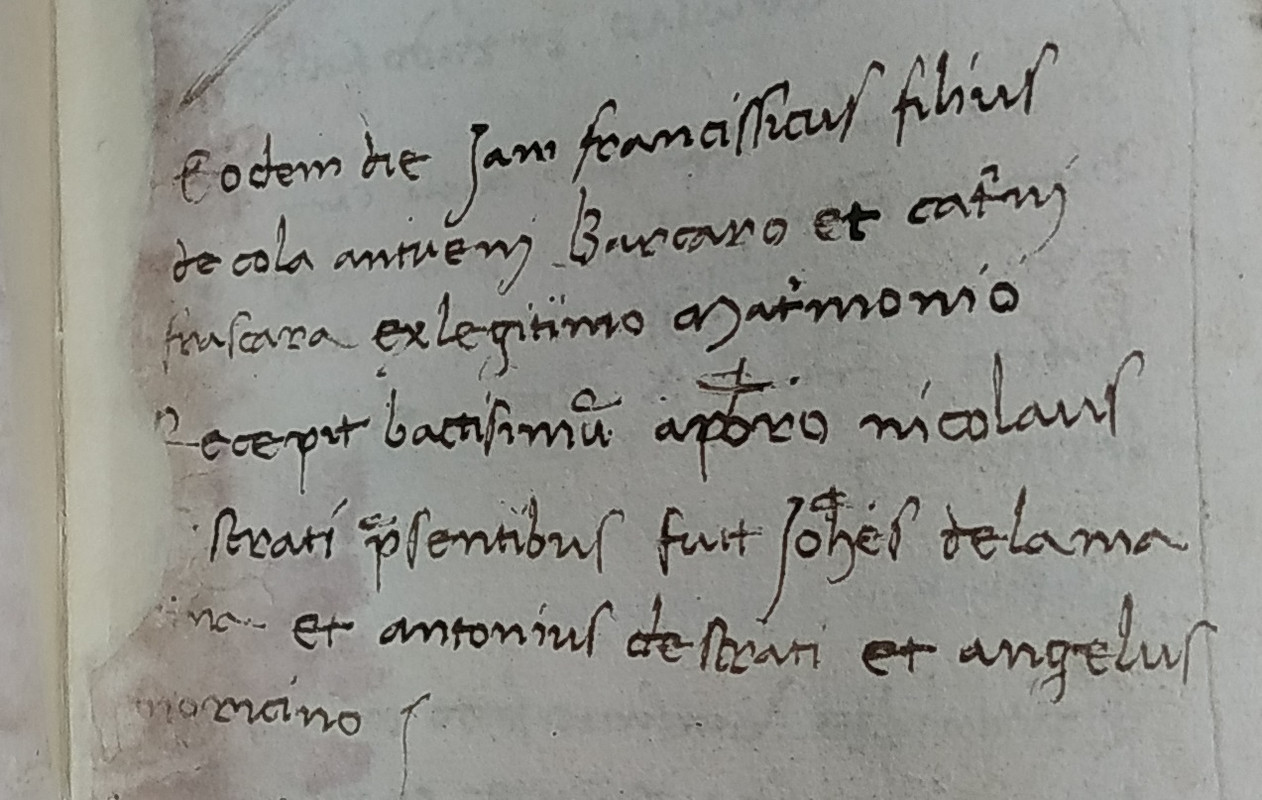 Eodem die Jam francissicus filius
de cola antuenj Barcaro et cat'nj
frascara ex legitimo Mat'monio
Recepit battisimū a pb̄ro nicolaus
strati p̄sentibus fuit Joh̄es de la ma
rina et antonius de strati et angelus
morcino